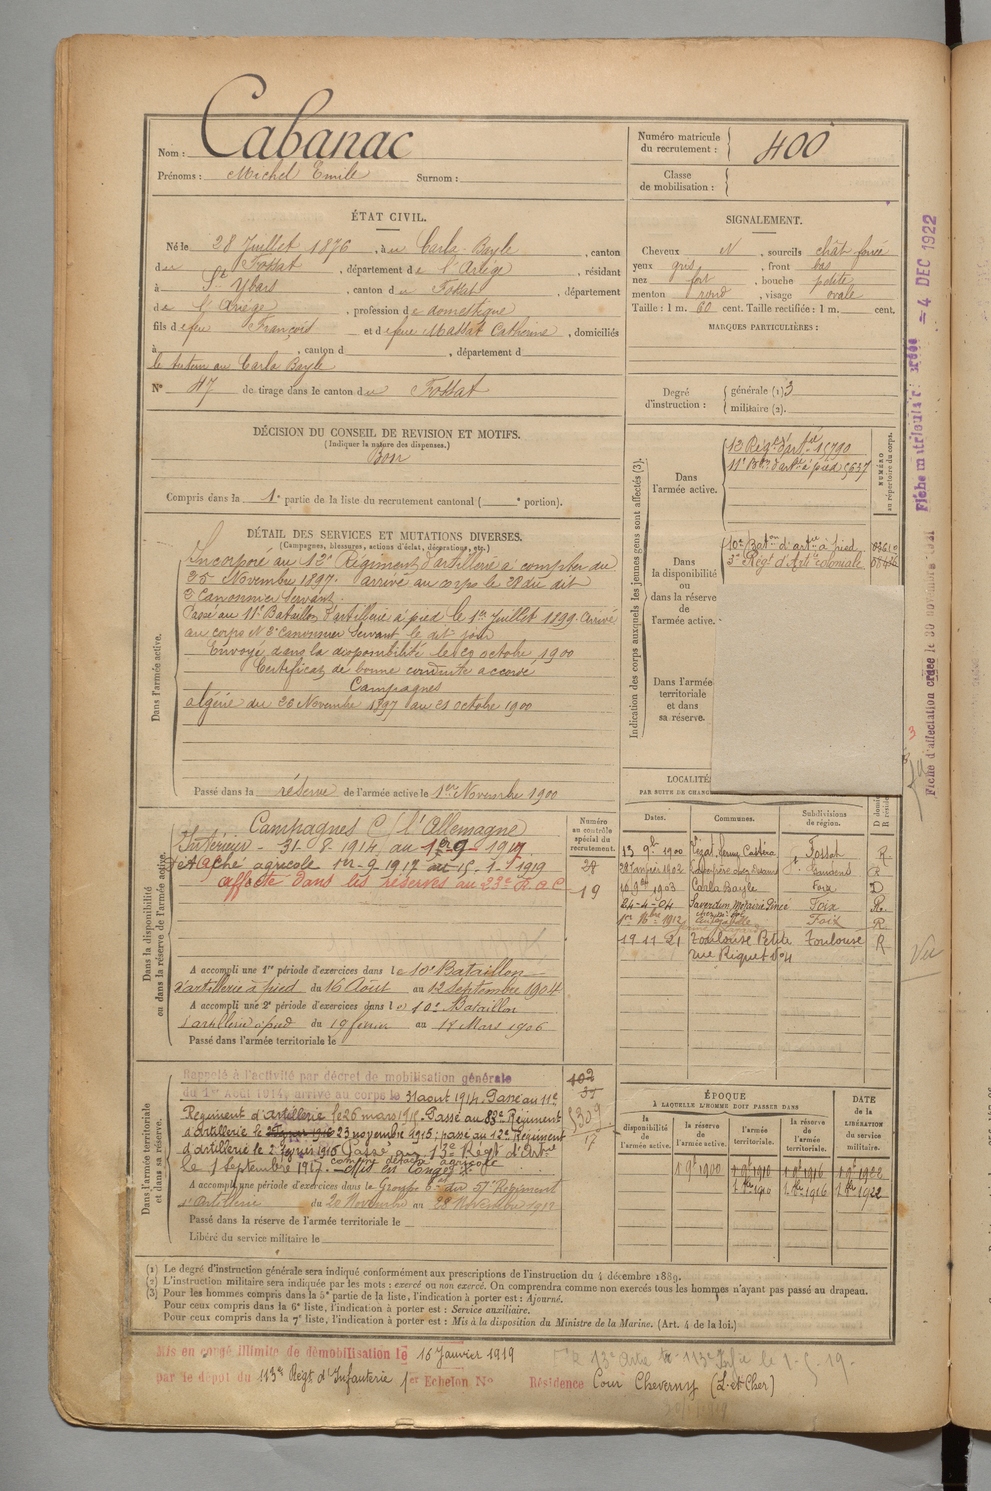 Nom : Cabanac
Prénoms : Michel Emile Surnom :
Numéro matricule du recrutement : 400
Classe de mobilisation :
ÉTAT CIVIL.
Né le 28 Juillet 1876, à u Carla-Bayle, canton
du Fossat, département de l'Ariège, résidant
à St Ybars, canton du Fossat, département
de l'Ariège, profession de domestique
fils de feu François et de feue Massat Catherine, domiciliés
à , canton d , département d
le tuteur au Carla Bayle
N° 47 de tirage dans le canton du Fossat
SIGNALEMENT.
Cheveux N, sourcils chât foncé
yeux gris, front bas
nez fort, bouche petite
menton rond, visage ovale
Taille : 1 m. 60 cent. Taille rectifiée : 1 m. cent.
MARQUES PARTICULIÈRES :
Degré d'instruction : générale (1) 3
militaire (2).
DÉCISION DU CONSEIL DE REVISION ET MOTIFS.
(Indiquer la nature des dispenses.)
Bon
Compris dans la 1e partie de la liste du recrutement cantonal ( e portion).
DÉTAIL DES SERVICES ET MUTATIONS DIVERSES.
(Campagnes, blessures, actions d'éclat, décorations, etc.)
Dans l'armée active.
Incorporé au 12e Régiment d'artillerie à compter du
25 Novembre 1897. arrivé au corps le 28 du dit
2e Canonnier Servant.
Passé au 11e Bataillon d'artillerie à pied le 1er Juillet 1899. Arrivé
au corps N 2e Canonnier Servant le dit jour
Envoyé dans la disponibilité le 20 octobre 1900
Certificat de bonne conduite accordé
Campagnes
algérie du 26 Novembre 1897 au 21 octobre 1900
Passé dans la réserve de l'armée active le 1er Novembre 1900
Indication des corps auxquels les jeunes gens sont affectés (3).
NUMÉRO au répertoire du corps.
Dans l'armée active.
13 Régt d'artie 15790
11e Bon d'artie à pied 5637
Dans la disponibilité ou dans la réserve de l'armée active.
10e Baton d'artie à pied
3e Régt d'Artie coloniale
Dans l'armée territoriale et dans sa réserve.
LOCALITÉ
PAR SUITE DE CHANG
Dates. Communes. Subdivisions de région.
13 9b 1900 Fossat R
28 Janvier 1902 R
1903 Carla Bayle Foix D
24-4-04 Saverdun Foix R.
1912 Foix R
19 11 21 Toulouse Petite rue Riquet No 4 Toulouse R
Dans la disponibilité ou dans la réserve de l'armée active.
Numéro au contrôle spécial du recrutement.
28
19
Campagnes C/ l'Allemagne
Intérieur - 31-8-1914 au 1-9-1917
Détaché agricole 1er-9-1917 au 15-1-1919
affecté dans les réserves au 23e R.A.C
A accompli une 1re période d'exercices dans le 10e Bataillon
d'artillerie à pied du 16 Août au 12 Septembre 1904
A accompli une 2e période d'exercices dans le 10e Bataillon
d'artillerie à pied du 19 février au 17 Mars 1906
Passé dans l'armée territoriale le
Dans l'armée territoriale et dans sa réserve.
Rappelé à l'activité par décret de mobilisation générale
du 1er Août 1914, arrivé au corps le 31 août 1914. Passé au 11e
Régiment d'Artillerie le 26 mars 1915. Passé au 83e Régiment
d'artillerie le 23 novembre 1915; passé au 12e Régiment
d'artillerie le 2 février 1916 Passé au 13e Régt d'Artie
le 1 Septembre 1917. comme détaché agricole
A accompli une période d'exercices dans le Groupe du 57e Régiment
d'Artillerie du 20 Novembre au 28 Novembre 1912
Passé dans la réserve de l'armée territoriale le
Libéré du service militaire le
ÉPOQUE
À LAQUELLE L'HOMME DOIT PASSER DANS
la disponibilité de l'armée active. la réserve de l'armée active. l'armée territoriale. la réserve de l'armée territoriale.
DATE de la LIBÉRATION du service militaire.
1 9b 1900 1 9b 1910 1 9b 1916 1 9b 1922
1 8bre 1910 1 8bre 1916 1 8bre 1922
(1) Le degré d'instruction générale sera indiqué conformément aux prescriptions de l'instruction du 4 décembre 1889.
(2) L'instruction militaire sera indiquée par les mots : exercé ou non exercé. On comprendra comme non exercés tous les hommes n'ayant pas passé au drapeau.
(3) Pour les hommes compris dans la 5e partie de la liste, l'indication à porter est : Ajourné.
Pour ceux compris dans la 6e liste, l'indication à porter est : Service auxiliaire.
Pour ceux compris dans la 7e liste, l'indication à porter est : Mis à la disposition du Ministre de la Marine. (Art. 4 de la loi.)
Mis en congé illimité de démobilisation le 16 Janvier 1919
par le dépôt du 113e Régt d'Infanterie 1er Echelon N°
Résidence Cour Cheverny (L-et-Cher)
= 4 DEC 1922
Vu